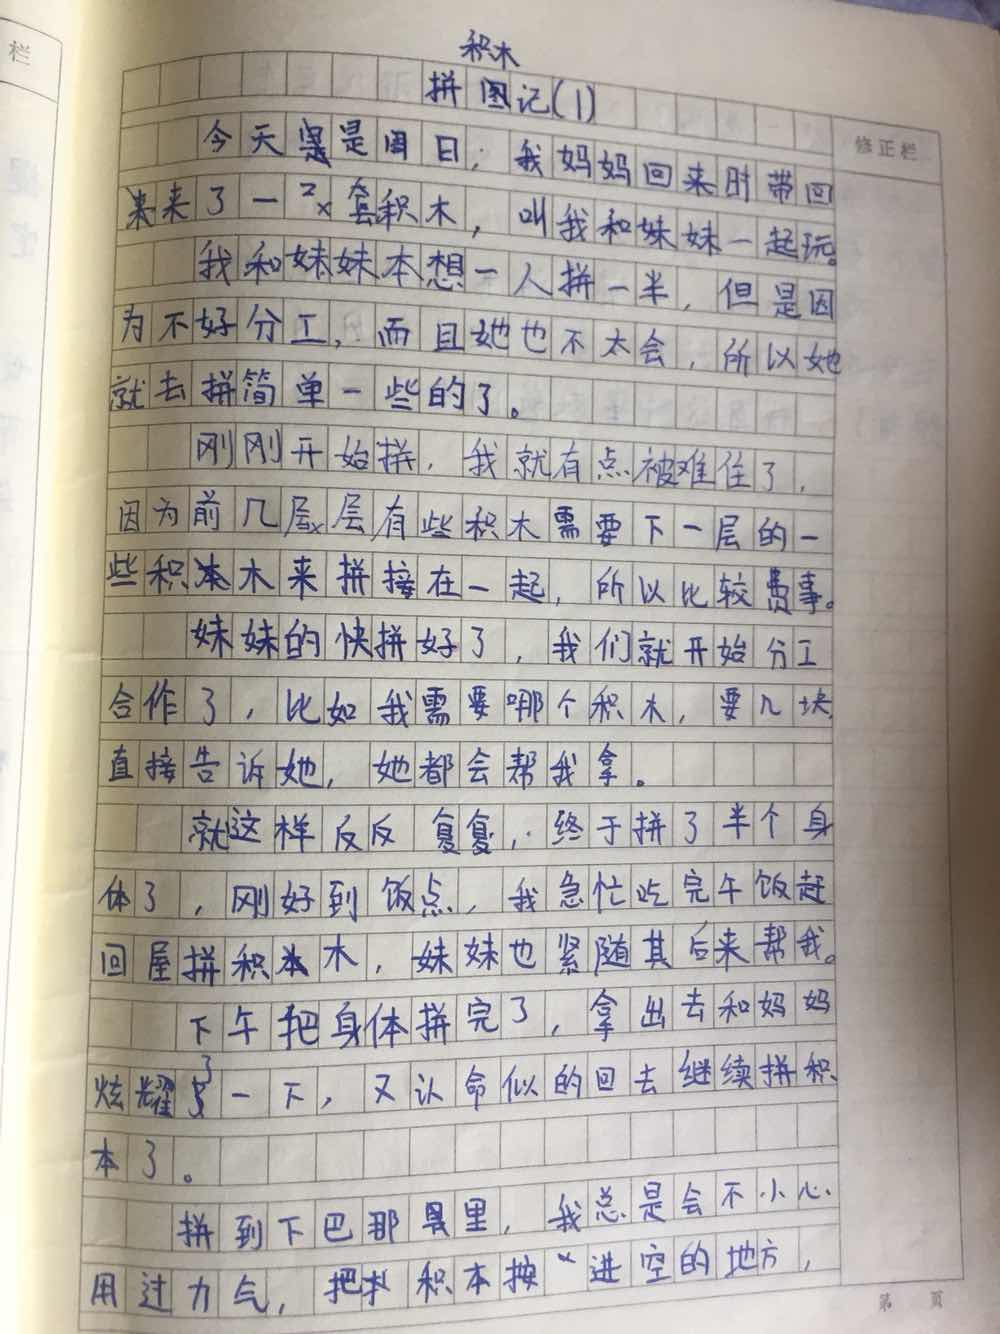 栏
积木
拼图记(1)
修正栏
今天是周日，我妈妈回来时带回
来了一套积木，叫我和妹妹一起玩。
我和妹妹本想一人拼一半，但是因
为不好分工，而且她也不太会，所以她
就去拼简单一些的了。
刚刚开始拼，我就有点被难住了，
因为前几层有些积木需要下一层的一
些积木来拼接在一起，所以比较费事。
妹妹的快拼好了，我们就开始分工
合作了，比如我需要哪个积木，要几块
直接告诉她，她都会帮我拿。
就这样反反复复，终于拼了半个身
体了，刚好到饭点，我急忙吃完午饭赶
回屋拼积木，妹妹也紧随其后来帮我。
下午把身体拼完了，拿出去和妈妈
炫耀了一下，又认命似的回去继续拼积
本了。
拼到下巴那里，我总是会不小心
用过力气，把积本按进空的地方，
第 页